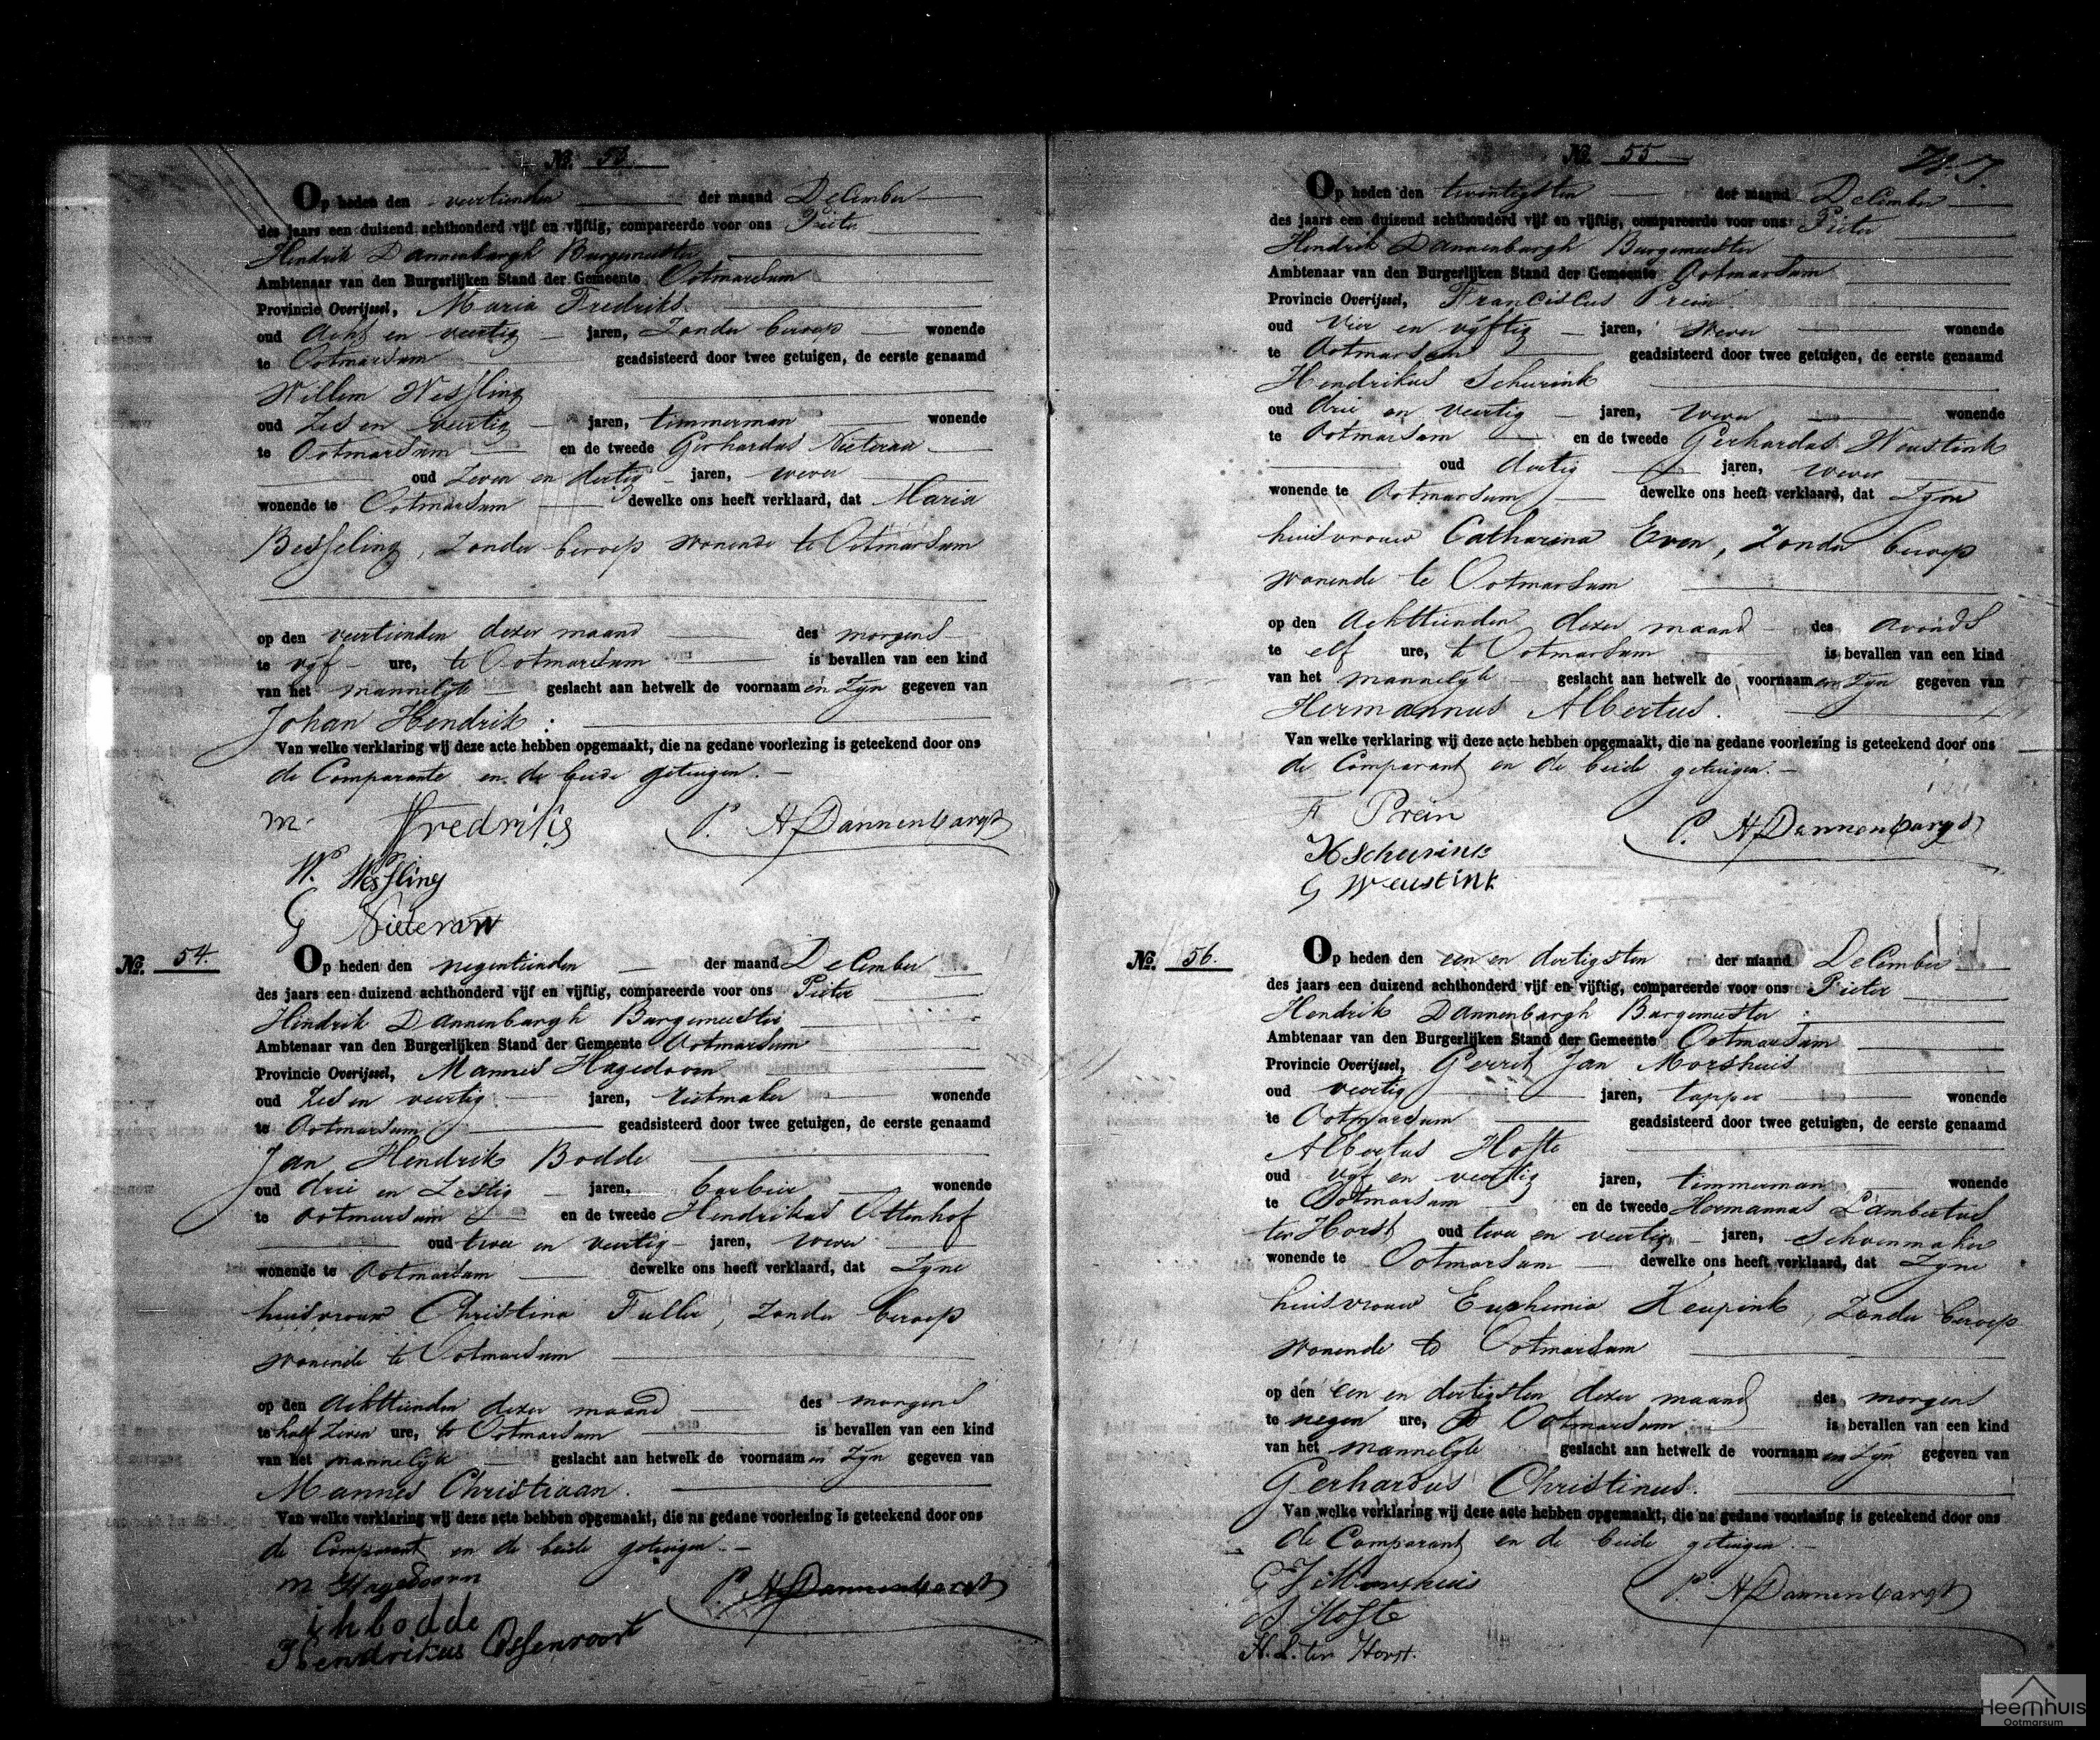 No. 53.
Op heden den veertienden der maand December
des jaars een duizend achthonderd vijf en vijftig, compareerde voor ons Pieter
Hendrik Dannenbargh Burgemeester
Ambtenaar van den Burgerlijken Stand der Gemeente Ootmarsum
Provincie Overijssel, Maria Fredriks
oud Acht en veertig jaren, Zonder beroep wonende
te Ootmarsum geadsisteerd door twee getuigen, de eerste genaamd
Willem Wessling
oud Zes en veertig jaren, timmerman wonende
te Ootmarsum en de tweede Gerhardus Nieteraw
oud Zeven en dertig jaren, wever
wonende te Ootmarsum dewelke ons heeft verklaard, dat Maria
Besseling, Zonder beroep wonende te Ootmarsum
op den veertienden dezer maand des morgens
te vyf ure, te Ootmarsum is bevallen van een kind
van het mannelyke geslacht aan hetwelk de voornaam en Zyn gegeven van
Johan Hendrik:
Van welke verklaring wij deze acte hebben opgemaakt, die na gedane voorlezing is geteekend door ons
de Comparante en de beide getuigen.
m. Fredriks
P. H Dannenbargh
W. Wessling
G Nieteraw
No. 54.
Op heden den negentienden der maand December
des jaars een duizend achthonderd vijf en vijftig, compareerde voor ons Pieter
Hendrik Dannenbargh Burgemeester
Ambtenaar van den Burgerlijken Stand der Gemeente Ootmarsum
Provincie Overijssel, Mannes Hagedoorn
oud Zes en veertig jaren, rietmaker wonende
te Ootmarsum geadsisteerd door twee getuigen, de eerste genaamd
Jan Hendrik Bodde
oud drie en Zestig jaren, barbier wonende
te Ootmarsum en de tweede Hendrikus
oud twee en veertig jaren, wever
wonende te Ootmarsum dewelke ons heeft verklaard, dat Zyne
huisvrouw Christina Fuller, Zonder beroep
wonende te Ootmarsum
op den Achttienden dezer maand des morgens
te half Zeven ure, te Ootmarsum is bevallen van een kind
van het mannelyke geslacht aan hetwelk de voornaam en Zyn gegeven van
Mannes Christiaan.
Van welke verklaring wij deze acte hebben opgemaakt, die na gedane voorlezing is geteekend door ons
de Comparant en de beide getuigen.
m Hagedoorn
P. H Dannenbargh
i h bodde
Hendrikus Ossenvoort
No. 55
Op heden den twintigsten der maand December
des jaars een duizend achthonderd vijf en vijftig, compareerde voor ons Pieter
Hendrik Dannenbargh Burgemeester
Ambtenaar van den Burgerlijken Stand der Gemeente Ootmarsum
Provincie Overijssel, Franciscus Prein
oud vier en vyftig jaren, wever wonende
te Ootmarsum geadsisteerd door twee getuigen, de eerste genaamd
Hendrikus Scheurink
oud drie en veertig jaren, wever wonende
te Ootmarsum en de tweede Gerhardus Weustink
oud dertig jaren, wever
wonende te Ootmarsum dewelke ons heeft verklaard, dat Zyne
huisvrouw Catharina Even, Zonder beroep
wonende te Ootmarsum
op den Achttienden dezer maand des avonds
te elf ure, te Ootmarsum is bevallen van een kind
van het mannelyke geslacht aan hetwelk de voornaam en Zyn gegeven van
Hermannus Albertus.
Van welke verklaring wij deze acte hebben opgemaakt, die na gedane voorlezing is geteekend door ons
de Comparant en de beide getuigen.
F Prein
P. H Dannenbargh
H Scheurink
G Weustink
No. 56.
Op heden den een en dertigsten der maand December
des jaars een duizend achthonderd vijf en vijftig, compareerde voor ons Pieter
Hendrik Dannenbargh Burgemeester
Ambtenaar van den Burgerlijken Stand der Gemeente Ootmarsum
Provincie Overijssel, Gerrit Jan Morshuis
oud veertig jaren, tapper wonende
te Ootmarsum geadsisteerd door twee getuigen, de eerste genaamd
Albertus Hofte
oud vyf en veertig jaren, timmerman wonende
te Ootmarsum en de tweede Hermannus Lambertus
ter Horst oud twee en veertig jaren, Schoenmaker
wonende te Ootmarsum dewelke ons heeft verklaard, dat Zyne
huisvrouw Euphemia Keupink, Zonder beroep
wonende te Ootmarsum
op den een en dertigsten dezer maand des morgens
te negen ure, te Ootmarsum is bevallen van een kind
van het mannelyke geslacht aan hetwelk de voornaam en Zyn gegeven van
Gerhardus Christinus.
Van welke verklaring wij deze acte hebben opgemaakt, die na gedane voorlezing is geteekend door ons
de Comparant en de beide getuigen.
G J Morshuis
P. H Dannenbargh
A Hofte
H. L. ter Horst.
Heemhuis
Ootmorsum